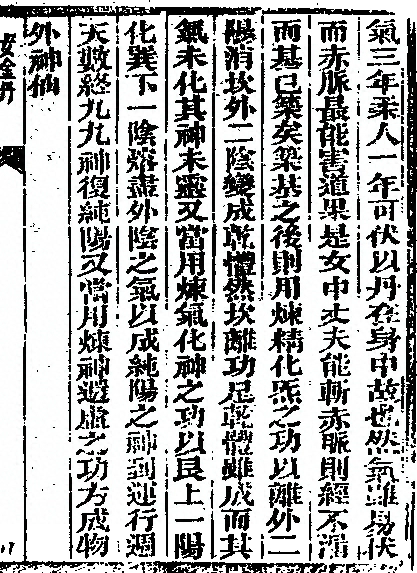 氣三年柔人一年可伏以丹在身中故也然氣雖易伏
而赤脈最能害道果是女中丈夫能斬赤脈則經不漏
而基已築矣築基之後則用煉精化炁之功以離外二
陽消坎外二陰變成乾體然坎離功足乾體雖成而其
氣未化其神未靈又當用煉氣化神之功以艮上一陽
化巽下一陰熔盡外陰之氣以成純陽之神到運行週
天數終九九神復純陽又當用煉神還虛之功方成物
外神仙
女金丹